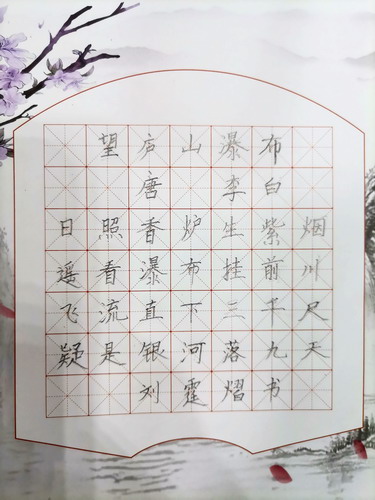 望庐山瀑布
唐 李白
日照香炉生紫烟
遥看瀑布挂前川
飞流直下三千尺
疑是银河落九天
刘霆熠书